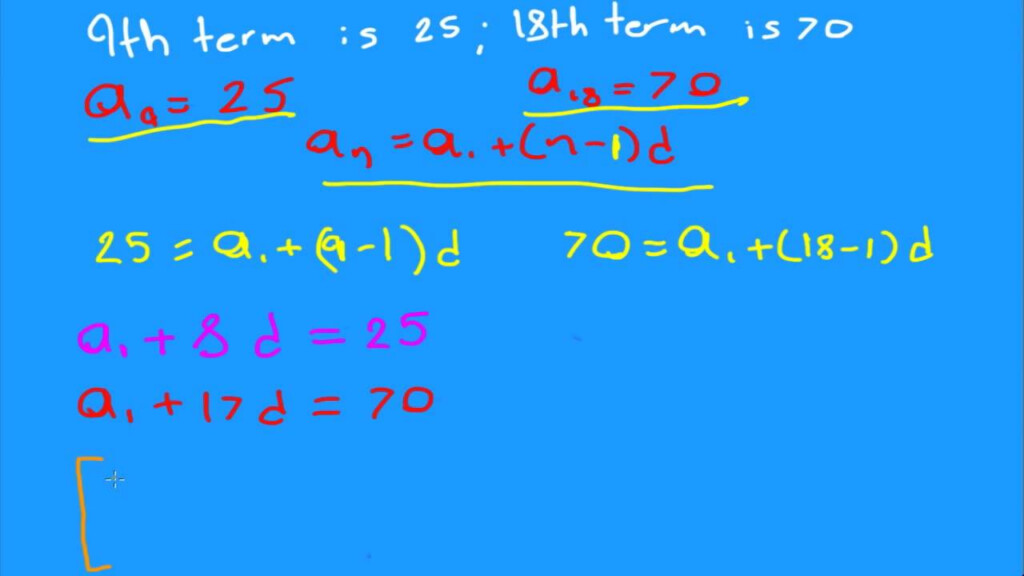 9th term is 25; 18th term is 70
a₉ = 25 a₁₈ = 70
aₙ = a₁ + (n-1)d
25 = a₁ + (9-1)d 70 = a₁ + (18-1)d
a₁ + 8d = 25
a₁ + 17d = 70
[